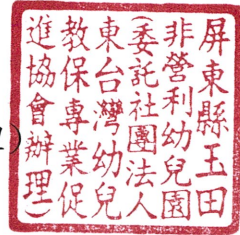 屏東縣玉田
非營利幼兒園
(委託社團法人
東台灣幼兒
教保專業促
進協會辦理)